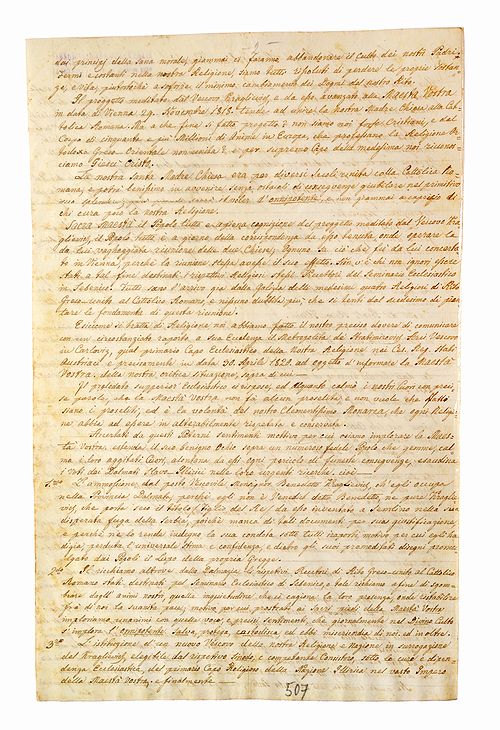 dei principj della sana morale, giammai ci faranno abbandonare il Culto dei nostri Padri.
Fermi e costanti nella nostra Religione, siamo tutti risoluti di perdere le proprie sostan-
ze, e vita, piutosto che a soffrire il minimo cambiamento dei Dogmi del nostro Rito.
Il progetto meditato dal Vescovo Kragljevich, e da esso avanzato alla MAESTÀ VOSTRA
in data di Vienna 29. Novembre 1815. tende ad unire la nostra Madre Chiesa alla Cat-
tolica Romana. Ma, e che forse si fatto progetto? non siamo noi forse Cristiani, e dal
Corpo di cinquanta e più Millioni di Anime in Europa, che professano la Religione Or-
todossa Greco-Orientale non-unita? e per supremo Capo della medesima noi ricono-
sciamo Giesù Cristo.
La nostra Santa Madre Chiesa era per diversi Secoli unita colla Cattolica Ro-
mana, e potrà benissimo in avvenire senza ostacoli di conseguenze
suo splendore, l'onnipotente, e non giammai a capriccio di
chi cura poco la nostra Religione.
Sacra Maestà! il Popolo tutto è appieno cognizione del progetto meditato dal Vescovo Kra-
gljevich, il Popolo tutto è a giorno della corrispondenza da esso tenuta onde operare la
da lui vagheggiata riunione delle due Chiese;
in Vienna, perchè la riunione stessa avesse il suo effetto. Non v'è chi non ignori essere
stati a tal fine destinati i rispettivi Religiosi stessi Rettori del Seminario Ecclesiastico
in Sebenico. Tutti sanno l'arrivo già dalla Galizia delle medesime quattro Religiosi di Rito
Greco-unito al Cattolico Romano, e nessuno dubita più, che si tenti dal medesimo di pian-
tare le fondamenta di questa riunione.
Siccome si tratta di Religione noi abbiamo fatto il nostro preciso dovere di comunicare
con un circostanziato raporto, a Sua Eccellenza il Metropolita de Stratimirovics Arci Vescovo
in Carlovitz, qual primario Capo Ecclesiastico della Nostra Religione nei Ces. Reg. Stati
Austriaci, e precisamente in data 30. Aprile 1820. ad oggetto d'informare la MAESTÀ
VOSTRA, della nostra critica situazione, sopra di cui
Il prelodato superior Ecclesiastico ci rispose, ed alquanto calmò i nostri Cuori con preci-
se parole, che la Maestà Vostra non fà alcun proseliti, e non vuole che fatti
siano i proseliti; ed è la volontà del nostro Clementissimo Monarca, che ogni Religio-
ne abbia ad essere inalterabilmente rispettata e conservata.
Accertati da questi Paterni sentimenti motivo per cui osiamo implorare la Maes-
tà Vostra, estenda il suo benigno Occhio sopra un numeroso fedele Popolo che geme, cal-
mi, e loro agitati Cuori, allontani da essi ogni pericolo di funeste conseguenze, esaudisca
i voti dei Dalmati Slavo Illirici nelle loro urgenti ricerche, cioè
1mo L'ammozione dal posto Vescovile Monsignor Benedetto Kragljevich, ch'egli occupa
nella Provincia Dalmata, perchè egli non è Venedict detto Benedetto, ne pure Kraglje-
vich, che porta seco il titolo (figlio del Re), da esso inventato a Semlino nella sua
disperata fuga della Serbia, poichè manca di tali documenti per sua giustificazione,
e perchè ne lo rende indegno la sua condotta sotto tutti raporti motivo per cui egli ha
digià perduta l'universale stima e confidenza e dietro gli suoi premeditati disegni promu-
lgato dai Popoli il Lupo della propria Gregge.
2do Il richiamo altrove dalla Dalmazia li rispettivi Rettori di Rito Greco-unito al Cattolico
Romano stati destinati pel Seminario Ecclesiastico di Sebenico, e tale richiamo a fine di sgom-
brare dagli animi nostri, quella inquietudine che si cagiona la loro presenza, onde ristabilire
frà di noi la svanita pace; motivo per cui, prostrati ai Sacri piedi della Maestà Vostra
imploriamo unanimi con quelle voci, e preci sentimenti, che giornalmente nel Divino Culto
s'implora l'onnipotente: Salva, protegi, custodisci, ed abbi misericordia di noi, ed in oltre.
3zo L'istituzione d'un nuovo Vescovo della nostra Religione, e Nazione, in surrogazione
del Kragljevich, elegibile dal rispettivo Sinodo, e comprobante Conc., sotto la cura e dipen-
denza Ecclesiastica del primario Capo Religioso della Nazione Illirica nel vasto Impero
della Maestà Vostra, e finalmente
507